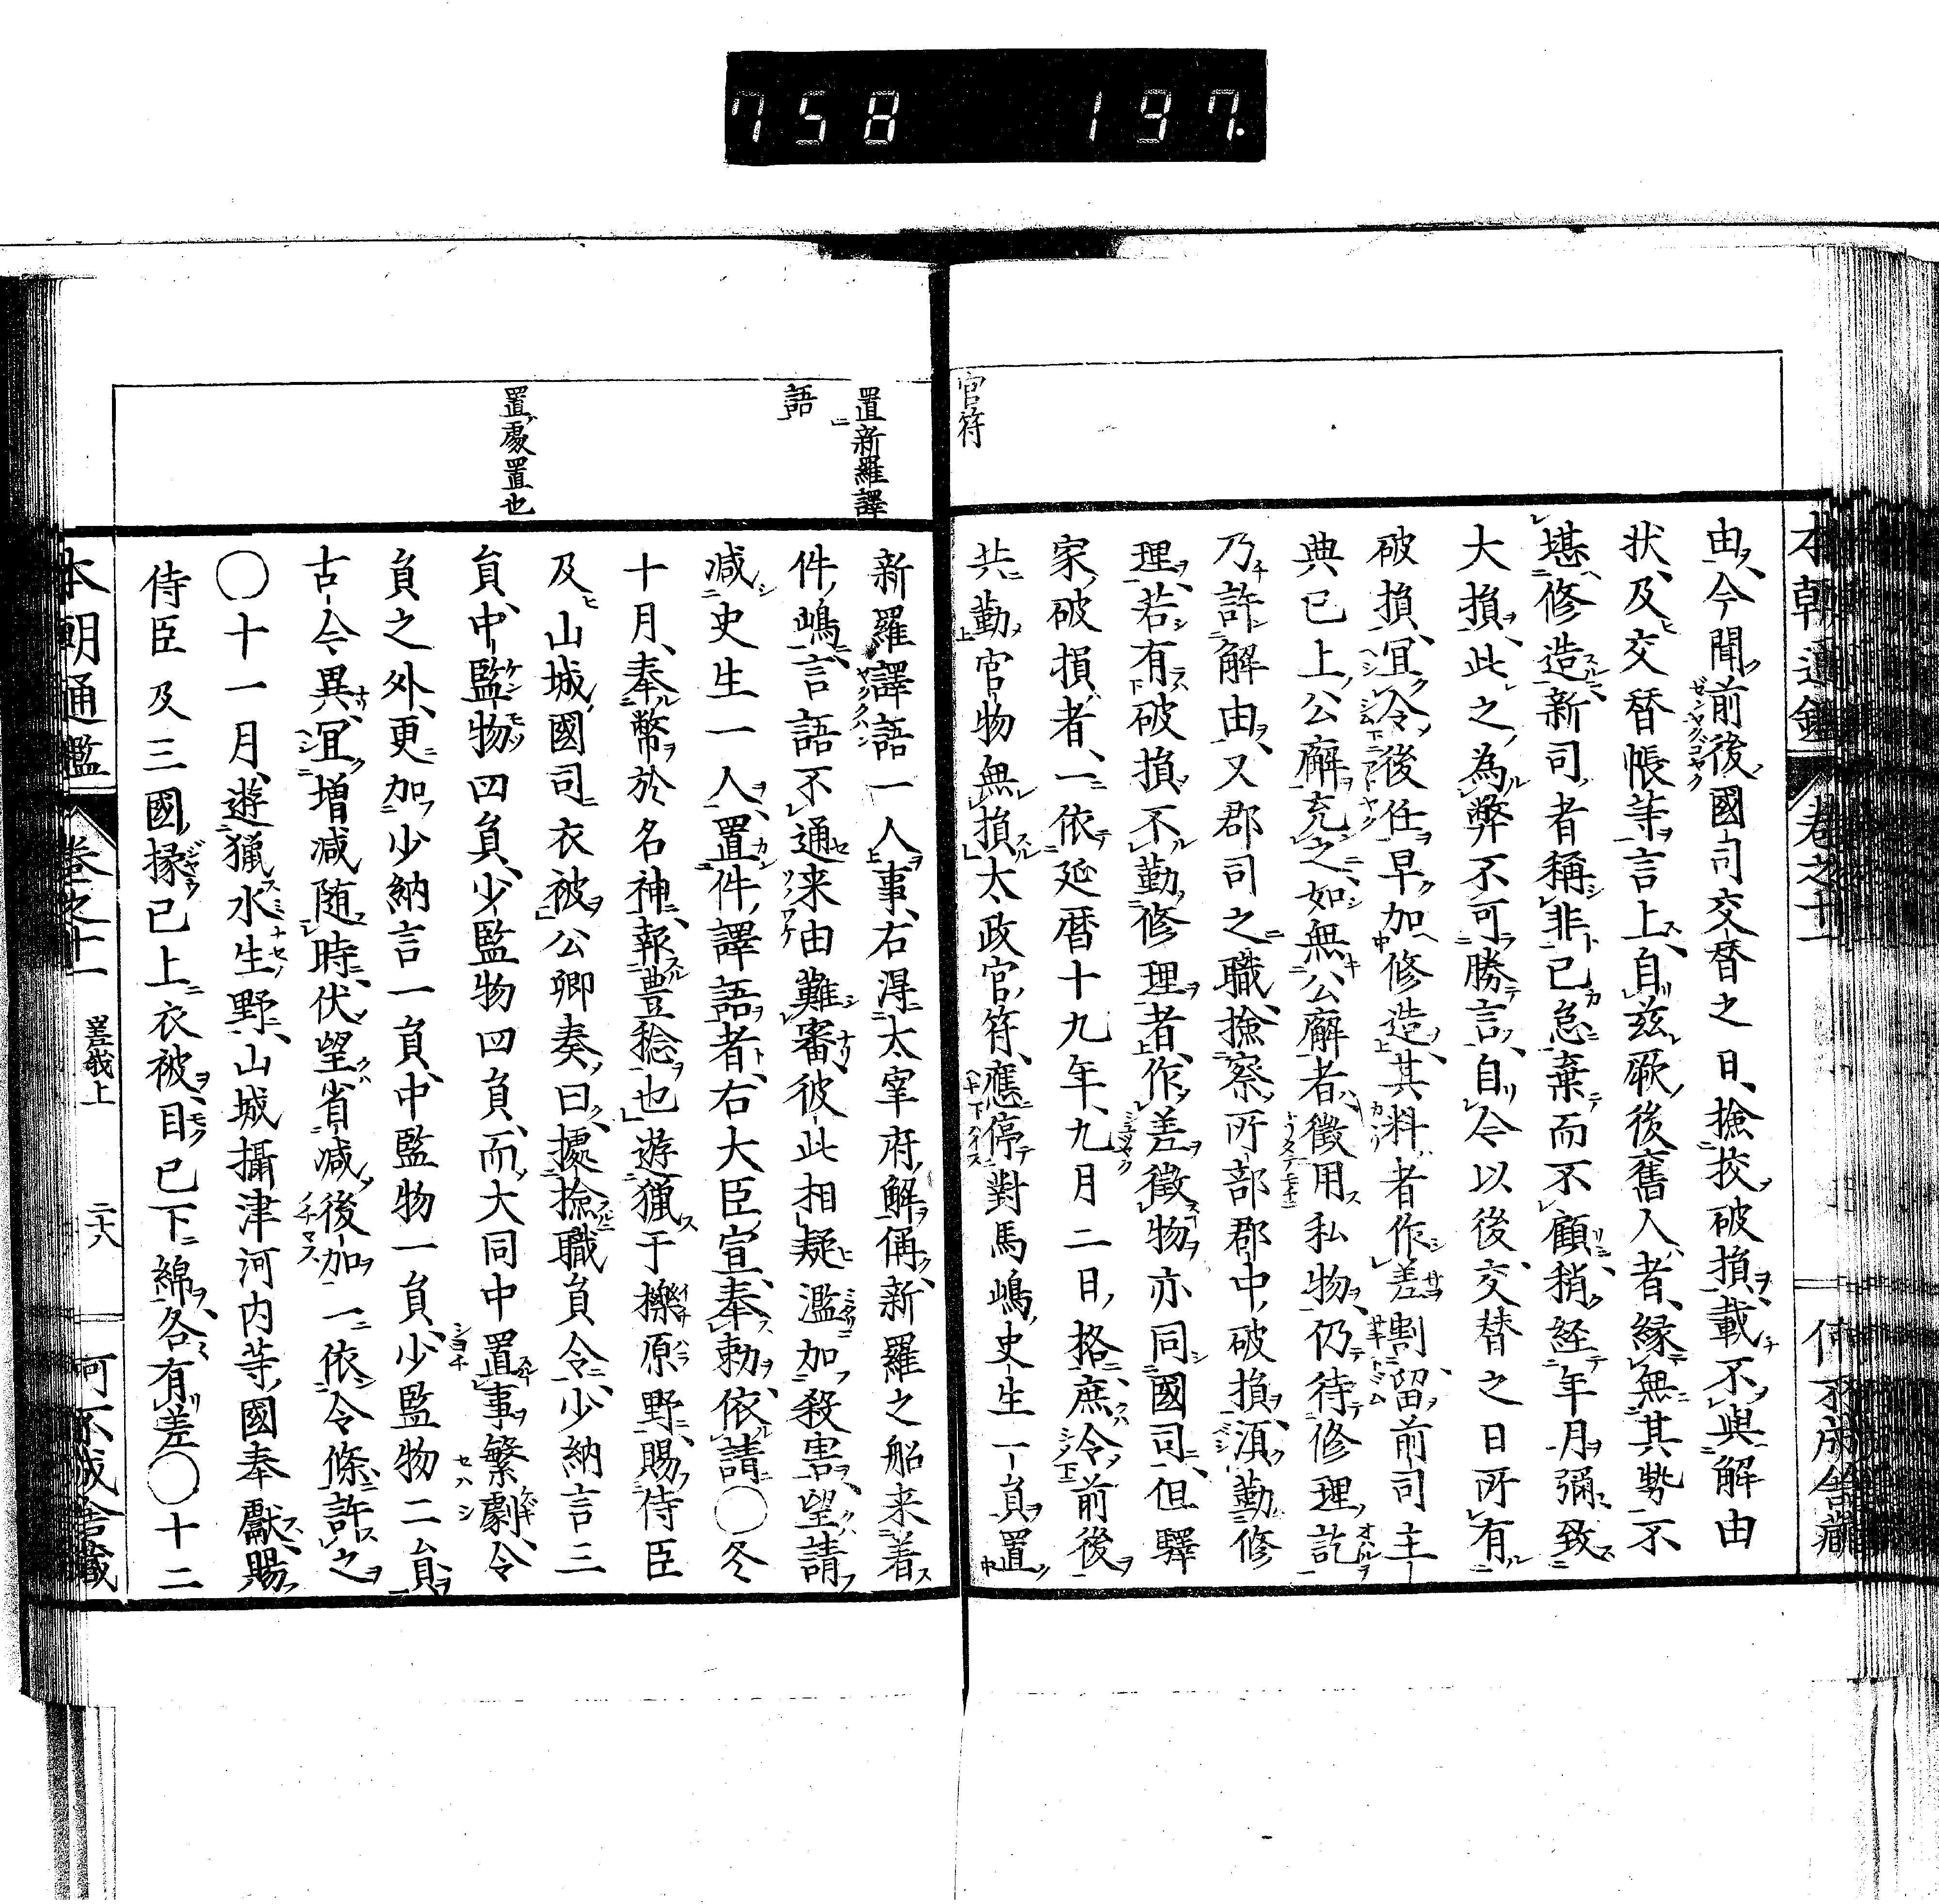 758 197.
官符
本朝通鑑 卷之十一
由今聞前後國司交替之日撿挍破損載不與解由
狀及交替帳等言上自茲厥後舊人者縁無其勢不
堪修造新司者稱非己怠棄而不顧稍經年月彌致
大損此之為弊不可勝言自今以後交替之日所有
破損冝令後任早加修造其料者作差割留前司主
典已上公廨充之如無公廨者徵用私物仍待修理訖
乃許解由又郡司之職撿察所部郡中破損湏勤修
理若有破損不勤修理者作差徵物亦同國司但驛
家破損者一依延暦十九年九月二日格庶令前後
共勤官物無損太政官符應停對馬嶋史生一員置
置新羅譯
語
置處置也
新羅譯語一人事右得太宰府解偁新羅之船来着
件嶋言語不通来由難審彼此相疑濫加殺害望請
减史生一人置件譯語者右大臣宣奉勅依請〇冬
十月奉幣於名神報豊稔也遊獵于櫟原野賜侍臣
及山城國司衣被公卿奏曰據撿職員令少納言三
員中監物四員少監物四員而大同中置事繁劇令
員之外更加少納言一員中監物一員少監物二員
古今異冝増减随時伏望省减後加一依令條許之
〇十一月遊獵水生野山城攝津河内等國奉獻賜
侍臣及三國掾已上衣被目已下綿各有差〇十二
本朝通鑑 卷之十一 嵯峨上 二十八